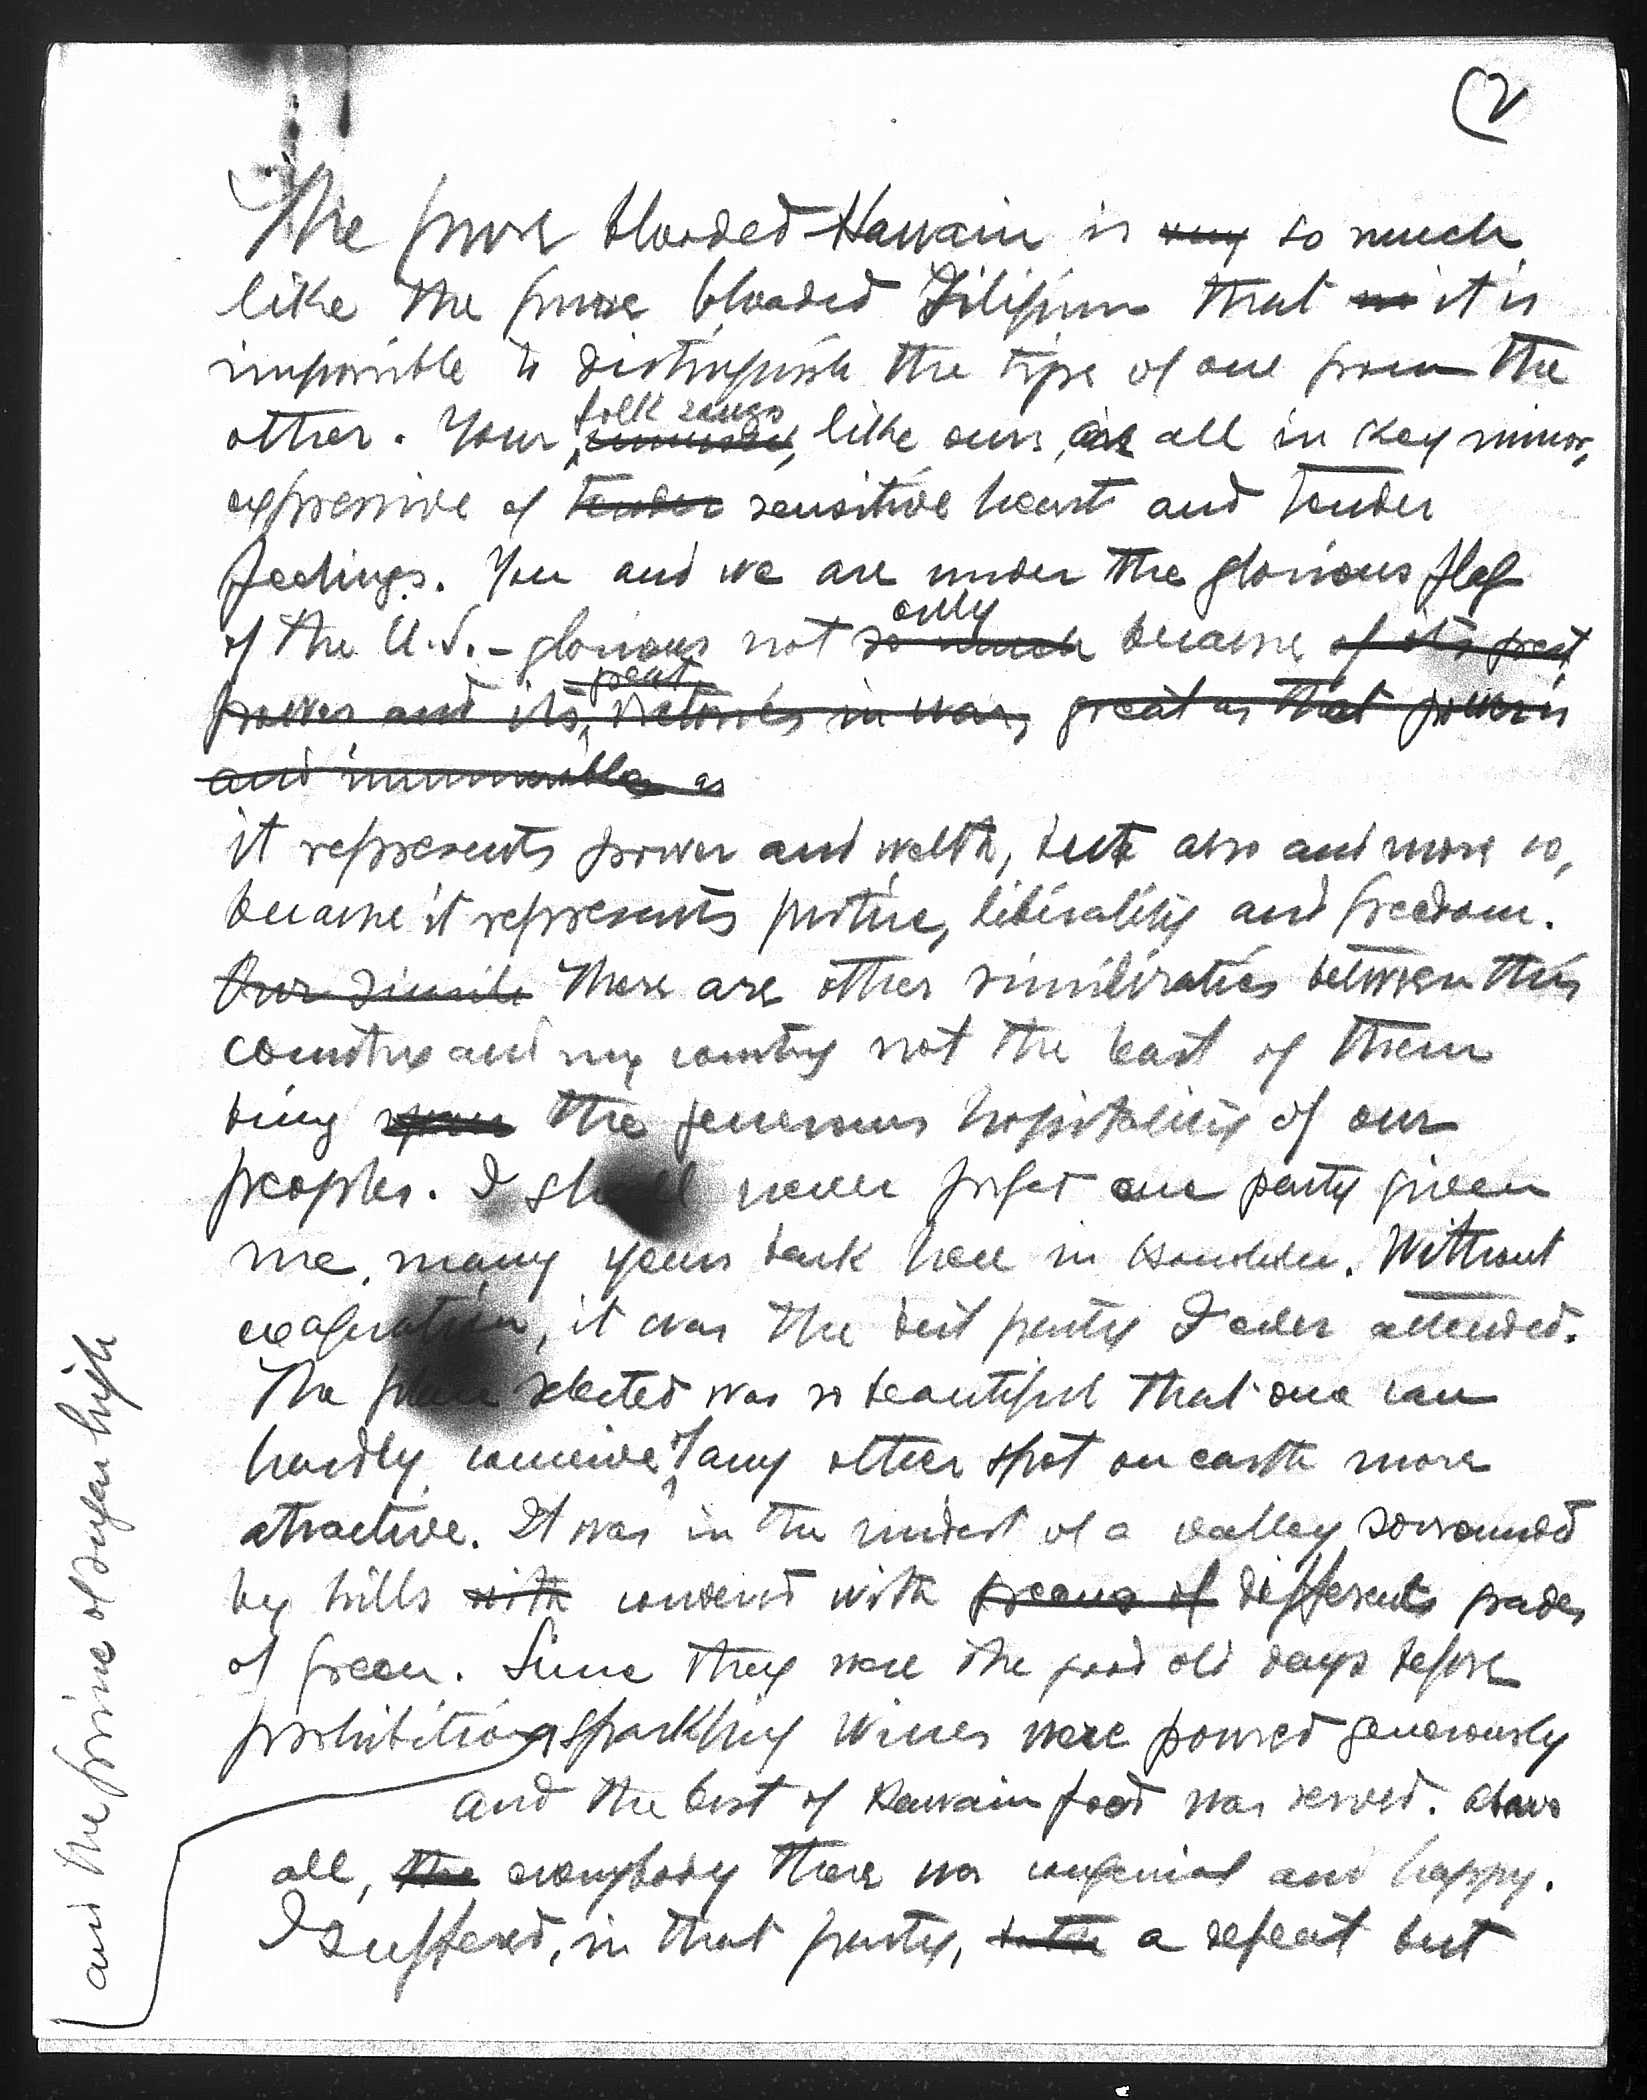 (2
The pure blooded Hawain is very so much
like the pure blooded Filipino that no it is
impossible to distinguish the tipe of one from the
folk songs
other. Your like ours, are all in key minor,
expressive of tender sensitive hearts and tender
feelings. You and we are under the glorious flag
only
of the U.S. - glorious not so much because of its great
great
power and its victories in war, great as that power is
and innumerable as
it represents power and welth, but also and more so,
because it represents justice, liberality and freedom.
Our simile There are other similirities between this
country and my country not the least of them
being the generous hospitality of our
peoples. I shall never forget one party given
me many years back here in Honolulu. Without
exageration, it was the best party I ever attended.
The place selected was so beautiful that one can
hardly conceive of any other spot on earth more
atractive. It was in the midst of a valley sorrounded
by hills with covered with greens of differents grades
of green. Since they were the good old days before
prohibition sparkling wines were poured generously
and the prime old sugar high
and the best of Hawain food was served. Above
all, the everybody there was congenial and happy.
I suffered, in that party, a defeat but